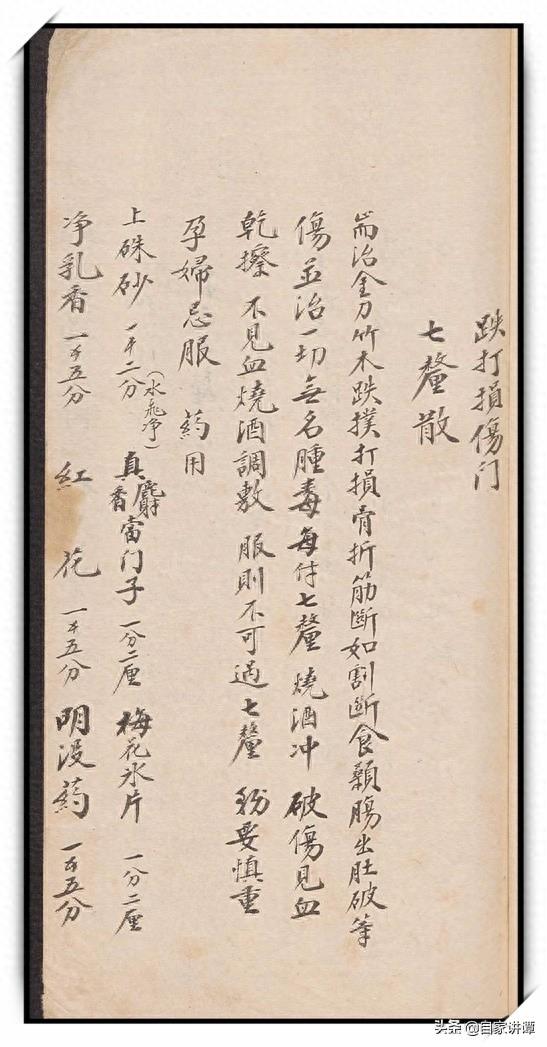 跌打損傷门
七釐散
耑治金刀竹木跌撲打損骨折筋斷如割斷食顙腸出肚破等
傷並治一切無名腫毒每付七釐 燒酒冲 破傷見血
乾擦 不見血燒酒調敷 服則不可過七釐 務要慎重
孕婦忌服 药用
上硃砂 一千二分(水飛净) 真麝香當门子 一分二厘 梅花氷片 一分二厘
净乳香 一千五分 紅花 一千五分 明沒药 一千五分
头条@自家讲谭